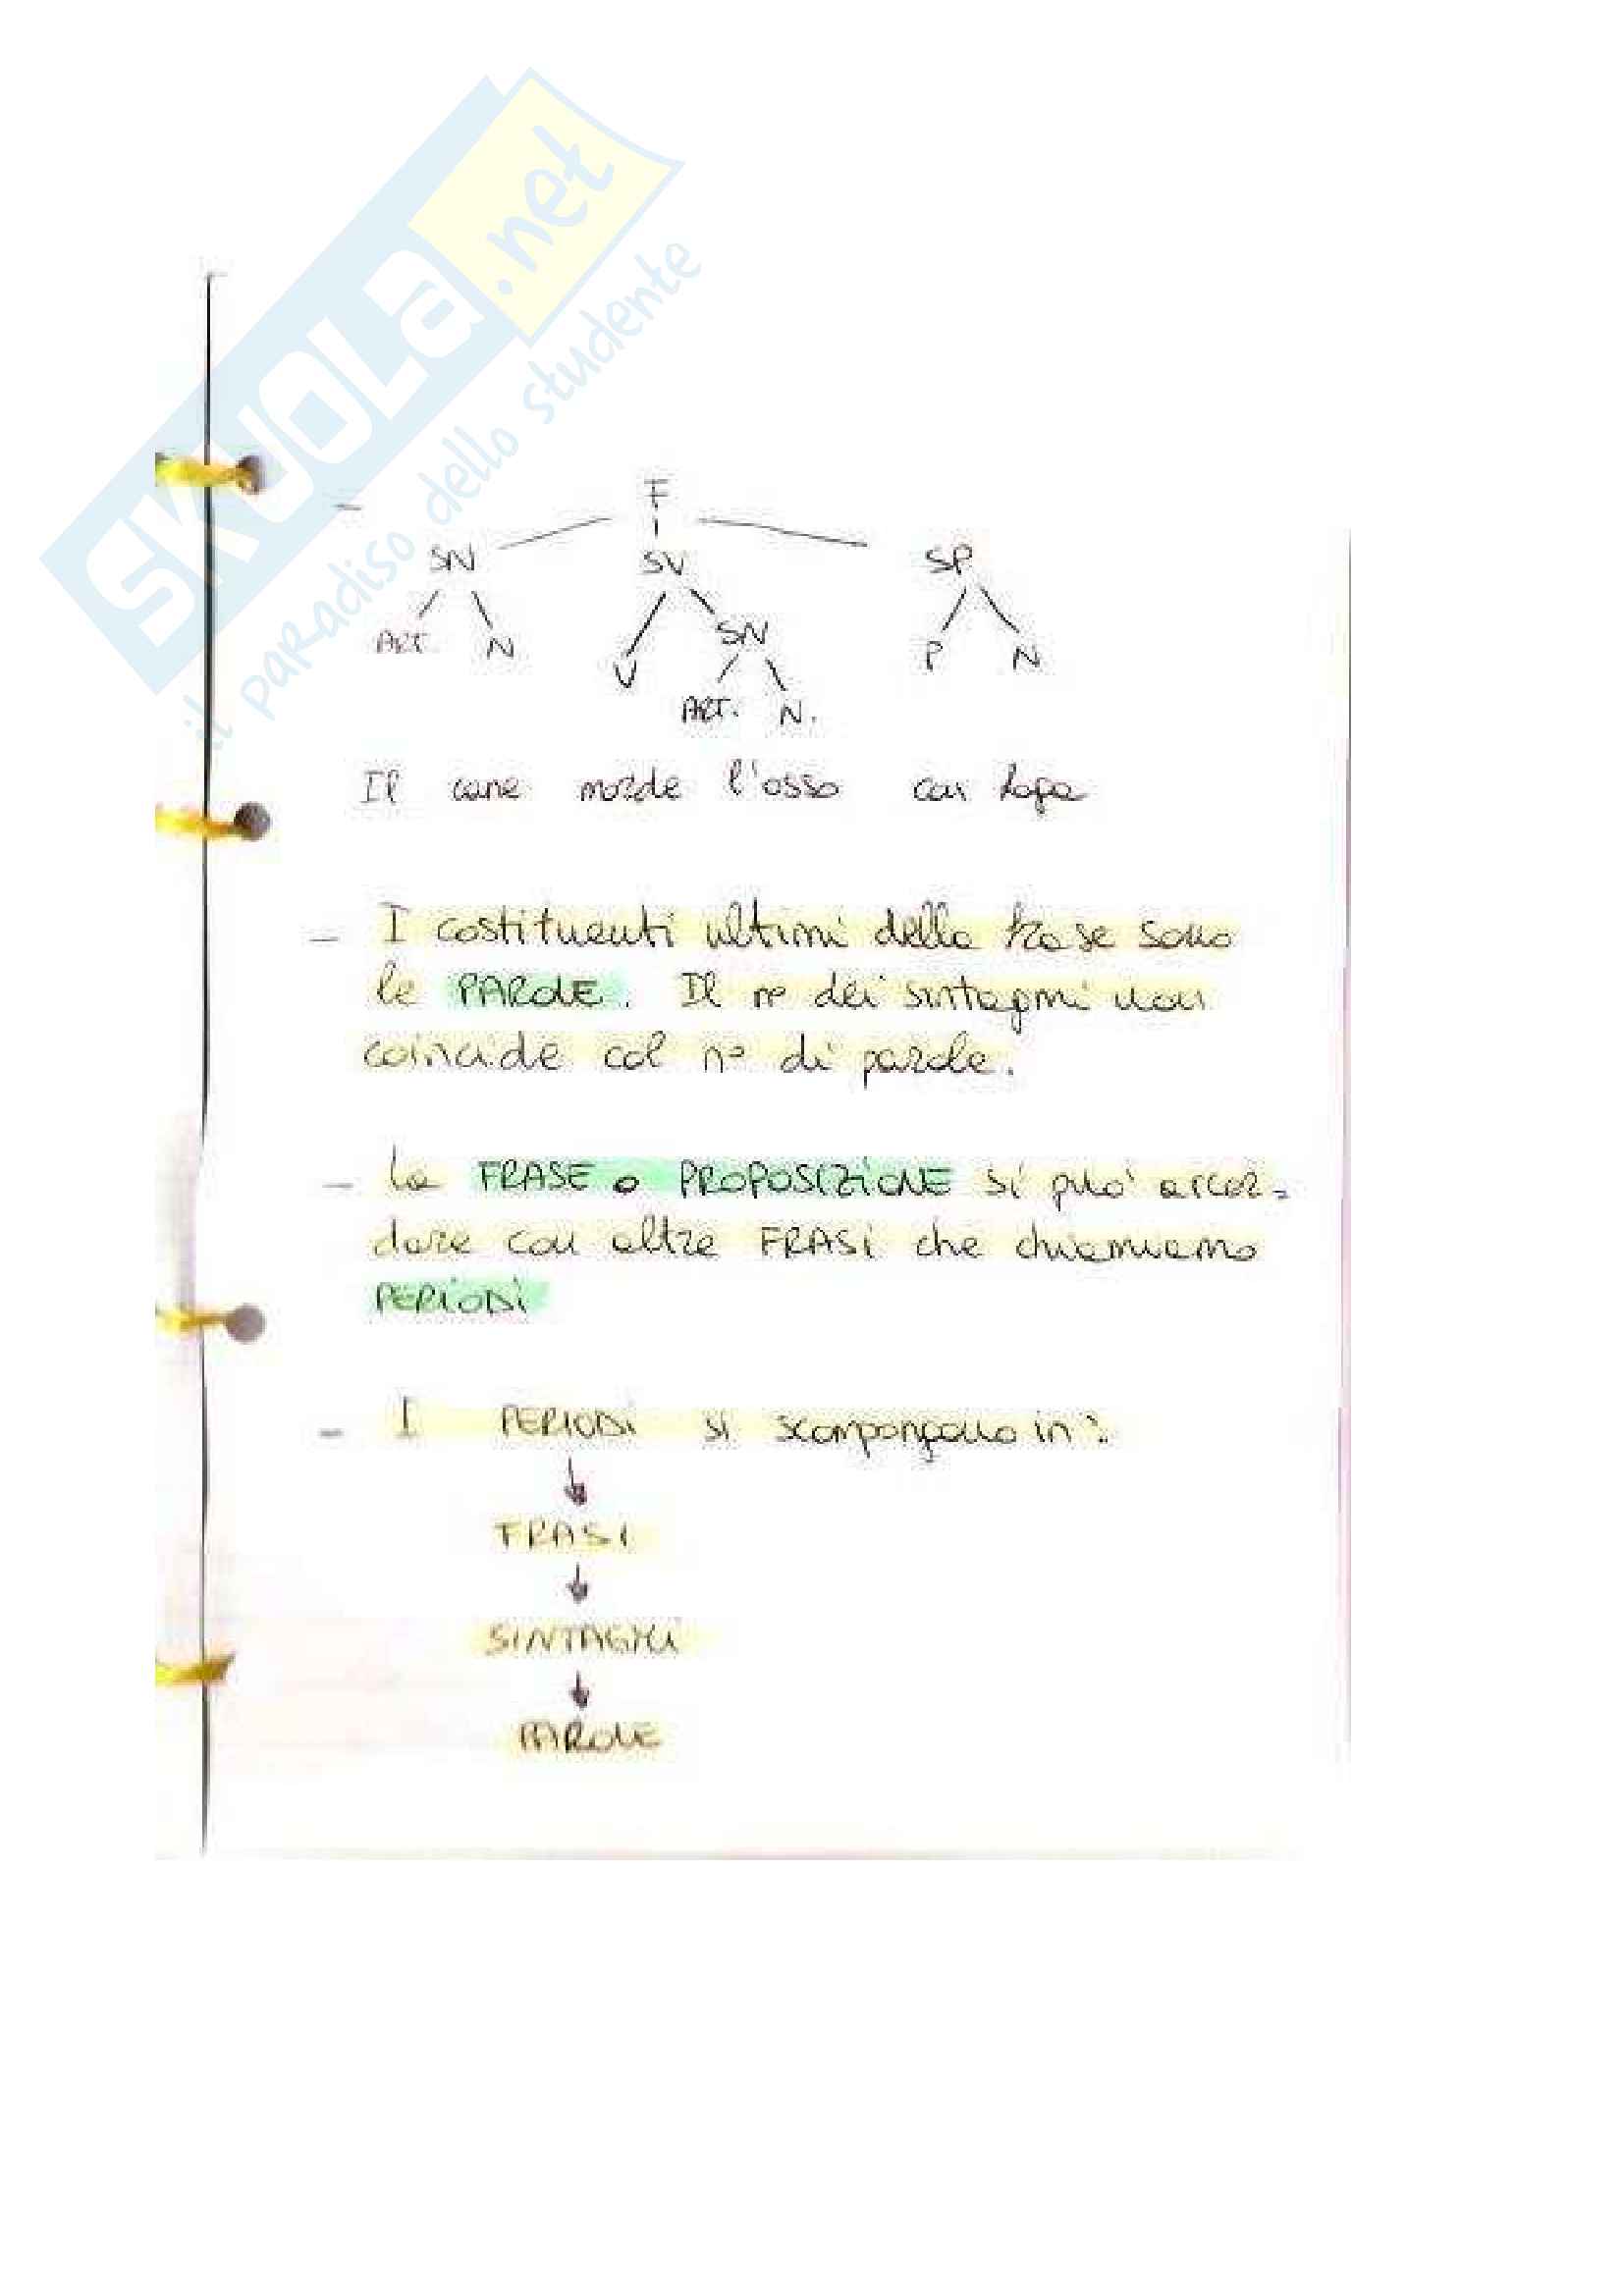 SKUOLA.net
il paradiso dello studente
- F
SN SV SP
ART. N V SN P N
ART. N.
Il cane morde l'osso con foga
- I costituenti ultimi della frase sono
le PAROLE. Il n° dei sintagmi non
coincide col n° di parole.
- La FRASE o PROPOSIZIONE si può accor=
dare con altre FRASI che chiamiamo
PERIODI
- I PERIODI si scompongono in:
FRASI
SINTAGMI
PAROLE